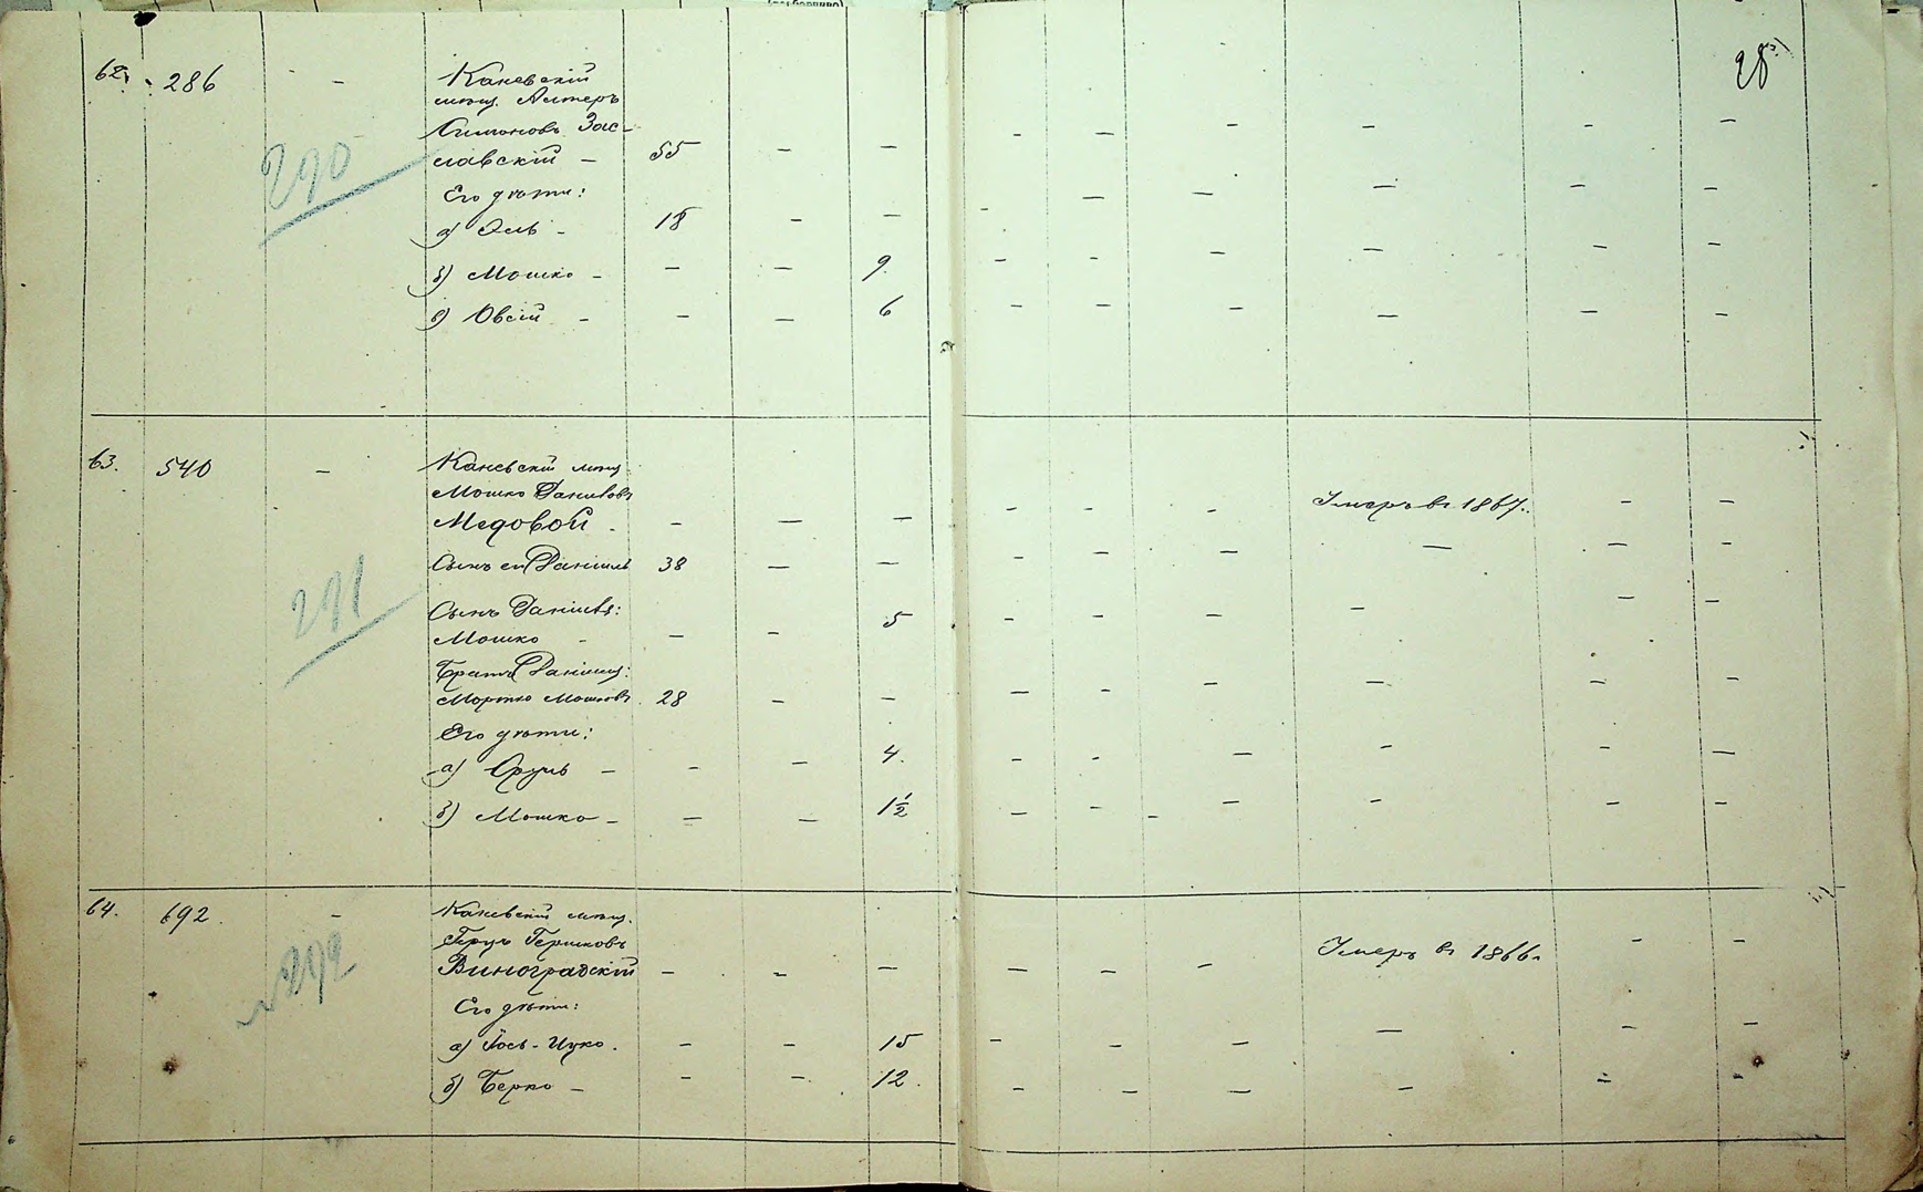 28
62. 286 — Каневскій
мѣщ. Алтеръ
Симоновъ Зас-
лавскій — 55 — —
Его дѣти:
а) Эль - 18 - —
б) Мошко - — — 9.
в) Овсій - - — 6
290
63. 540 — Каневскій мѣщ.
Мошко Даниловъ
Медовой - — — — Умеръ въ 1867.
Сынъ его Даніиль 38 — —
Сынъ Даніиля:
Мошко - — - 5
Братъ Даніила:
Мортко Мошковъ 28 - —
Его дѣти:
а) Сруль — - — 4.
б) Мошко — — — 1½
291
64. 692. — Каневскій мѣщ.
Гершковъ
Виноградскій — - — Умеръ въ 1866.
Его дѣти:
а) Іось-Ицко. - - 15
б) Берко — - - 12.
292